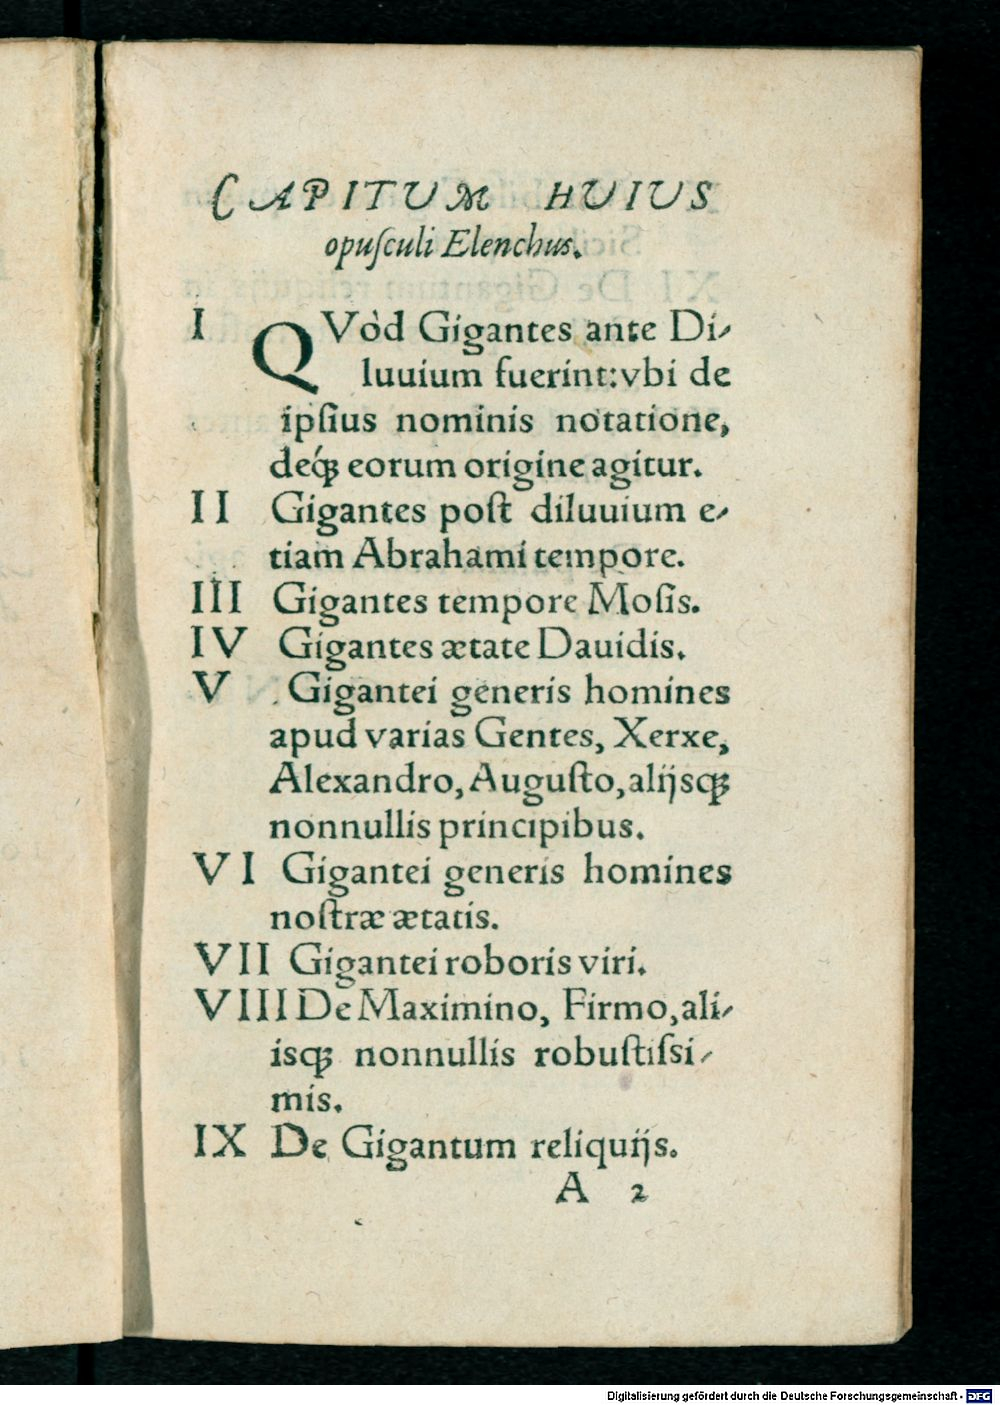 CAPITUM HUIUS
opuſculi Elenchus.
I QVòd Gigantes ante Di-
luuium fuerint: vbi de
ipſius nominis notatione,
deq́ꝫ eorum origine agitur.
II Gigantes poſt diluuium e-
tiam Abrahami tempore.
III Gigantes tempore Moſis.
IV Gigantes ætate Dauidis.
V Gigantei generis homines
apud varias Gentes, Xerxe,
Alexandro, Auguſto, alijsqꝫ
nonnullis principibus.
VI Gigantei generis homines
noſtræ ætatis.
VII Gigantei roboris viri.
VIII De Maximino, Firmo, ali-
isqꝫ nonnullis robuſtiſsi-
mis.
IX De Gigantum reliquijs.
A 2
Digitalisierung gefördert durch die Deutsche Forschungsgemeinschaft - DFG